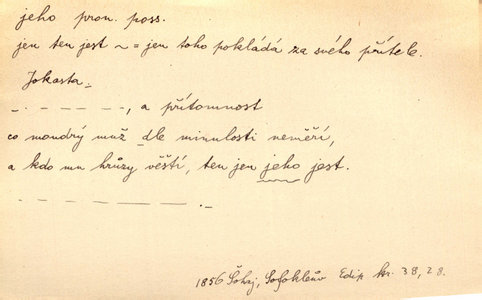 jeho pron. poss.
jen ten jest ~ = jen toho pokládá za svého přítele.
Jokasta_
_ . _ _ _ _ _, a přítomnost
co moudrý muž dle minulosti neměří,
a kdo mu hrůzy věští, ten jen jeho jest.
_ . _ _ _ _ _ _ _ . _
1856 Šohaj, Sofokleův Edip kr. 38, 28.